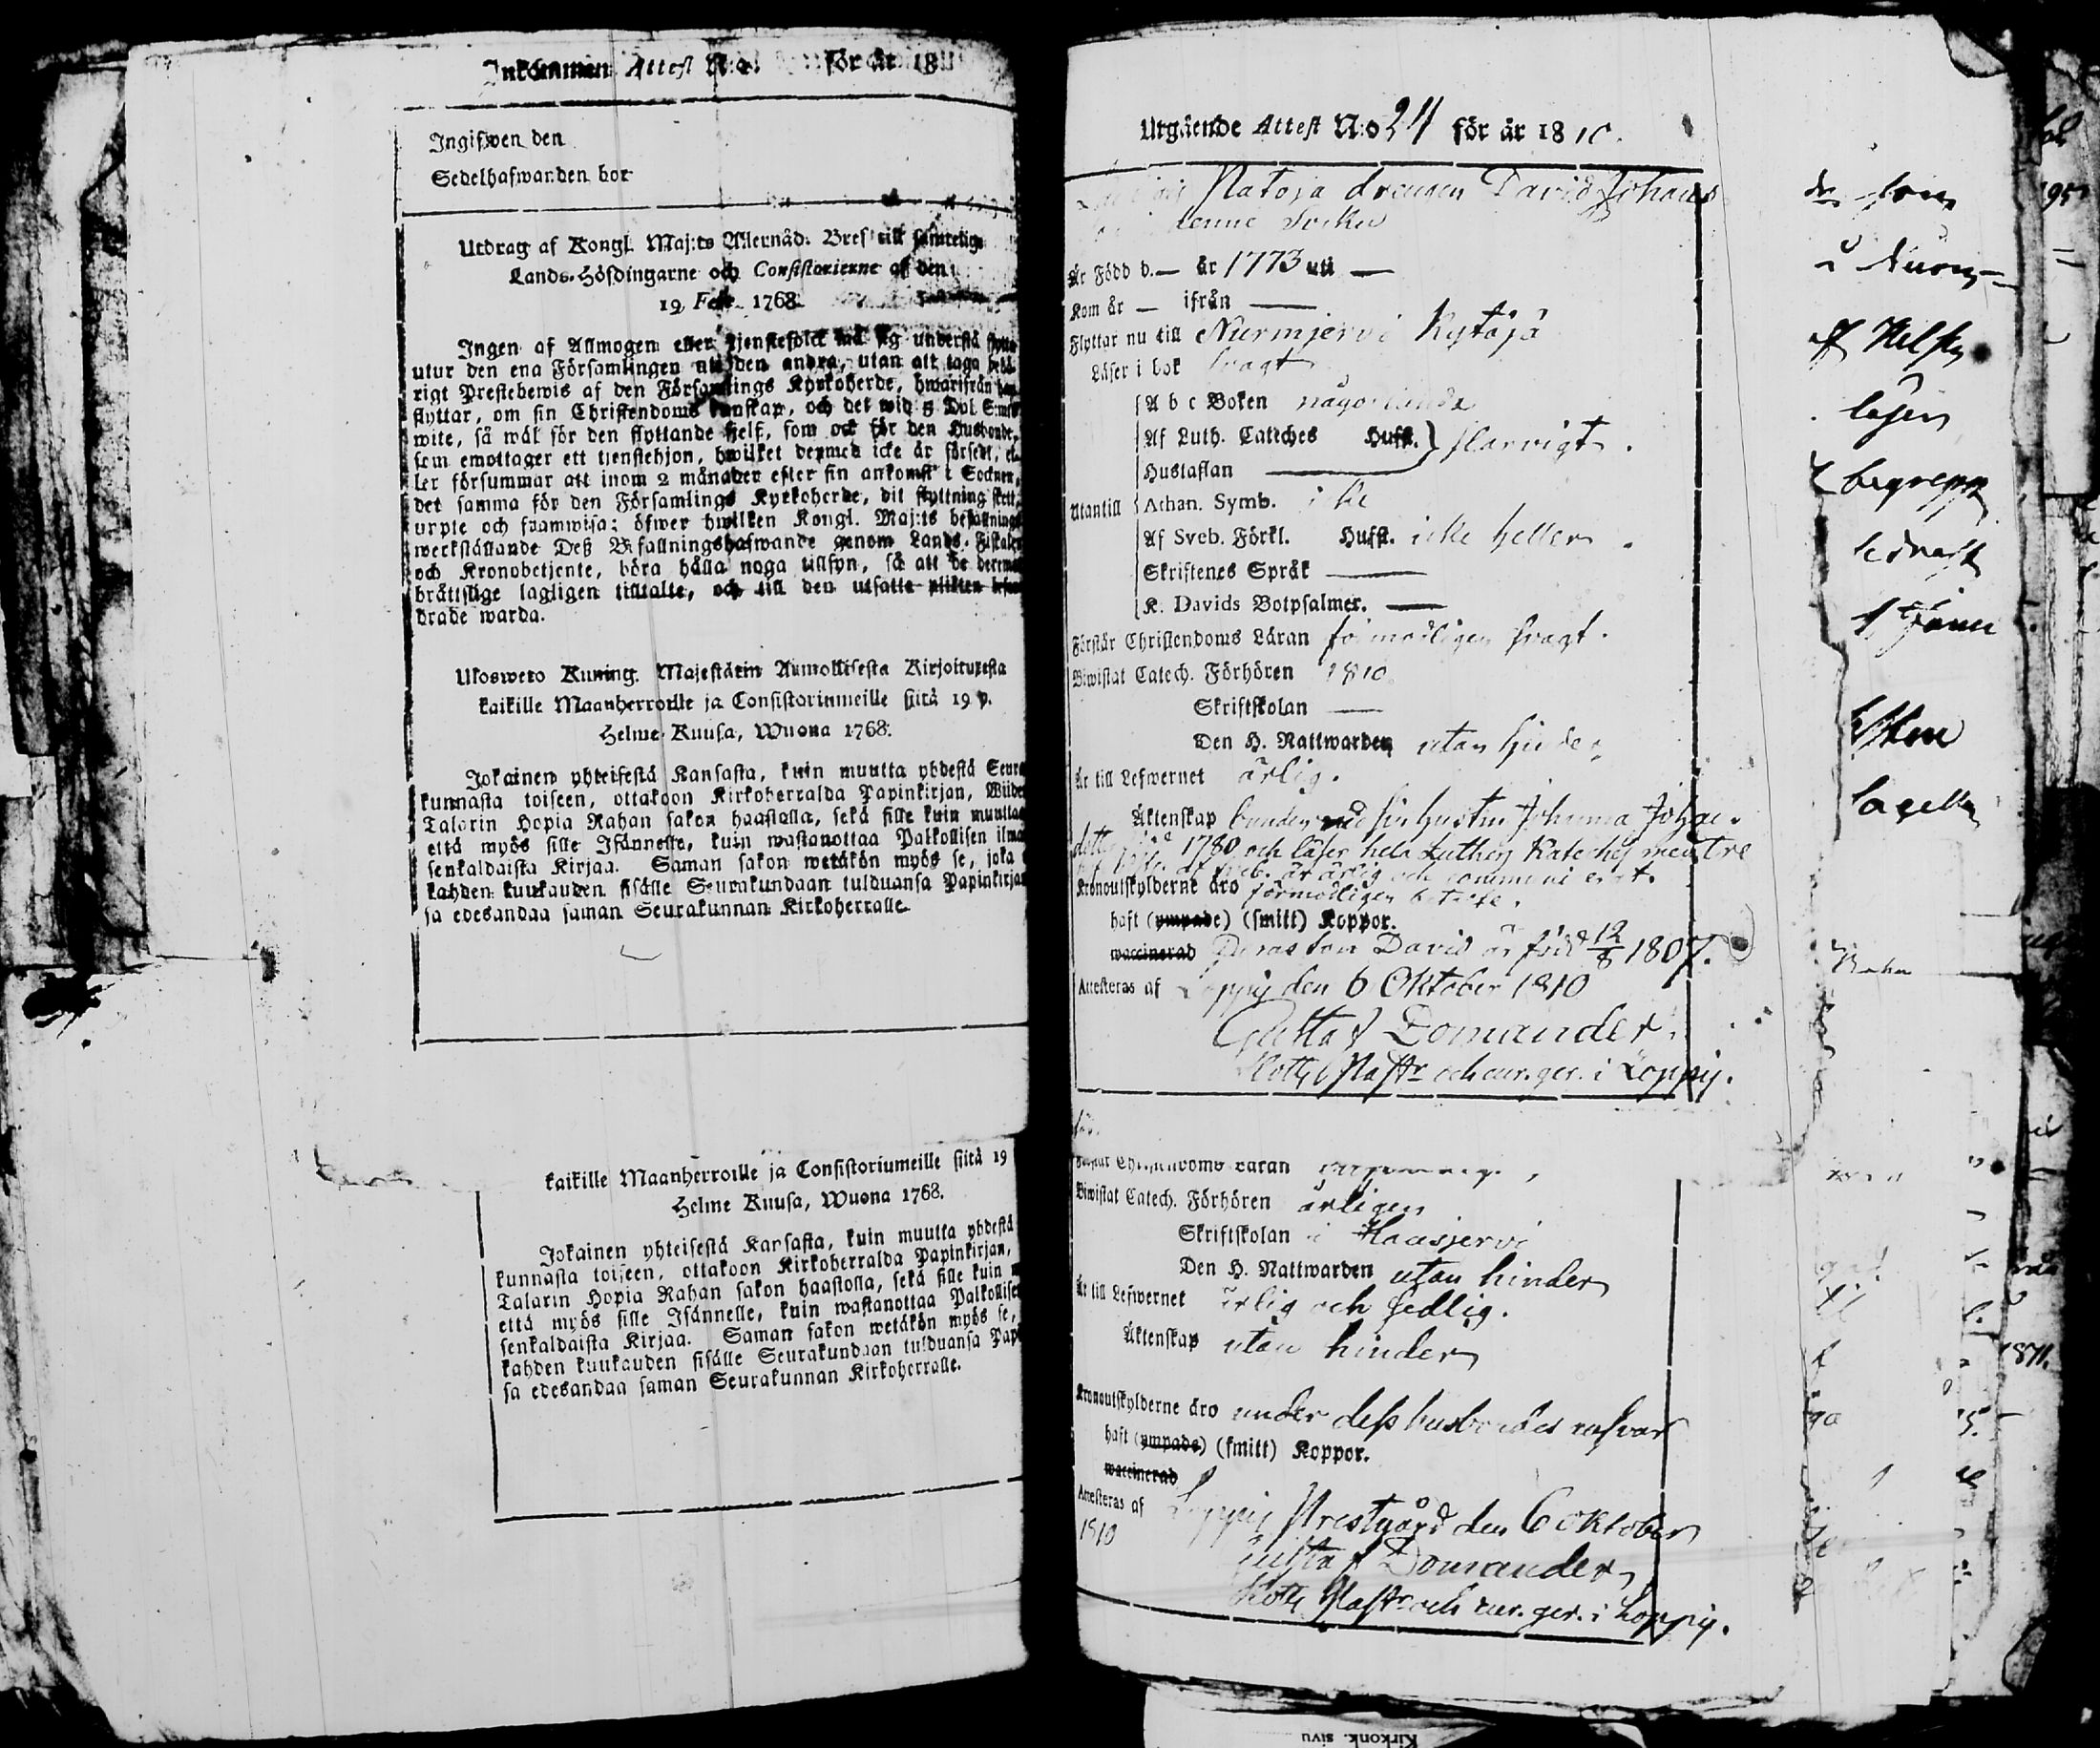 Inkommen Attest N:o för år 18
Ingifwen den
Sedelhafwanden bor
Utdrag af Kongl. Maj:ts Allernåd. Bref till samtelige
Lands-Höfdingarne och Consistorierne af den
19 Febr. 1768.
Ingen af Allmogen eller tjenstefolck må sig understå flytta
utur den ena Församlingen uti den andra, utan att taga behö-
rigt Prestebewis af den Församlings Kyrkoherde, hwarifrån han
flyttar, om sin Christendoms kunskap, och det wid 5 Dal. S:mts
wite, så wäl för den flyttande sjelf, som ock för den Husbonde,
som emottager ett tjenstehjon, hwilket dermed icke är försedt, el-
ler försummar att inom 2 månader efter sin ankomst i Socknen,
det samma för den Församlings Kyrkoherde, dit flyttning skett,
urpte och framwisa: öfwer hwilken Kongl. Maj:ts befallnings
werkställande Deß Befallningshafwande genom Lands-Fiskaler
och Kronobetjente, böra hålla noga tillsyn, så att de dermed
bråttslige lagligen tilltalte, och till den utsatte plikten befor-
drade warda.
Ulosweto Kuning. Majestätin Aumollisesta Kirjoituxesta
kaikille Maanherroille ja Consistoriumeille siitä 19 p.
Helme-Kuusa, Wuona 1768.
Jokainen yhteisestä Kansasta, kuin muutta yhdestä Seura-
kunnasta toiseen, ottakoon Kirkoherralda Papinkirjan, Wiiden
Talarin Hopia Rahan sakon haastolla, sekä sille kuin muuttaa
että myös sille Isännelle, kuin wastanottaa Palkollisen ilman
senkaldaista Kirjaa. Saman sakon wetäkön myös se, joka
kahden kuukauden sisälle Seurakundaan tulduansa Papinkirjan-
sa edesandaa saman Seurakunnan Kirkoherralle.
kaikille Maanherroille ja Consistoriumeille siitä 19
Helme Kuusa, Wuona 1768.
Jokainen yhteisestä Kansasta, kuin muutta yhdestä
kunnasta toiseen, ottakoon Kirkoherralda Papinkirjan,
Talarin Hopia Rahan sakon haastolla, sekä sille kuin m
että myös sille Isännelle, kuin wastanottaa Palkollise
senkaldaista Kirjaa. Saman sakon wetäkön myös se,
kahden kuukauden sisälle Seurakundaan tulduansa Pap
sa edesandaa saman Seurakunnan Kirkoherralle.
Utgående Attest N:o 24 för år 1810.
Natoja drengen David Johans
denne Socken
Är Född d. — år 1773 uti —
Kom år — ifrån —
Flyttar nu till Nurmjervi Kytäjä
Läser i bok svagt
A b c Boken någorlunda
Af Luth. Catéches Hufst. } slarvigt.
Hustaflan
Utantill
Athan. Symb. icke
Af Sveb. Förkl. Hufst. icke heller.
Skriftenes Språk —
K. Davids Botpsalmer. —
Förstår Christendoms Läran förmodligen svagt.
Biwistat Catech. Förhören 1810
Skriftskolan —
Den H. Nattwarden utan hinder
Är till Lefwernet ärlig.
Äktenskap bunden med sin hustru Johanna Johans
dotter född 1780 och läser hela Luthers Kateches med tre
af Sveb. är ärlig och communicerat.
Kronoutskylderne äro förmodligen betalte.
haft (ympade) (smitt) Koppor.
waccinerad Deras son David är född 12/8 1807.
Attesteras af Loppis den 6 Oktober 1810
Gustaf Domander
Kotts Past:r och cur. ger. i Loppis.
Förstår Christendoms Läran
Biwistat Catech. Förhören årligen
Skriftskolan i Hausjervi
Den H. Nattwarden utan hinder
Är till Lefwernet ärlig och sedlig.
Äktenskap utan hinder
Kronoutskylderne äro under dess husbondes ansvar
haft (ympade) (smitt) Koppor.
waccinerad
Attesteras af Loppis Prestgård den 6 oktober
1810
Gustaf Domander
Kotts Past:r och cur. ger. i Loppis.
af Helsing
läsen
begrepp
1871.
Kirkonk. sivu